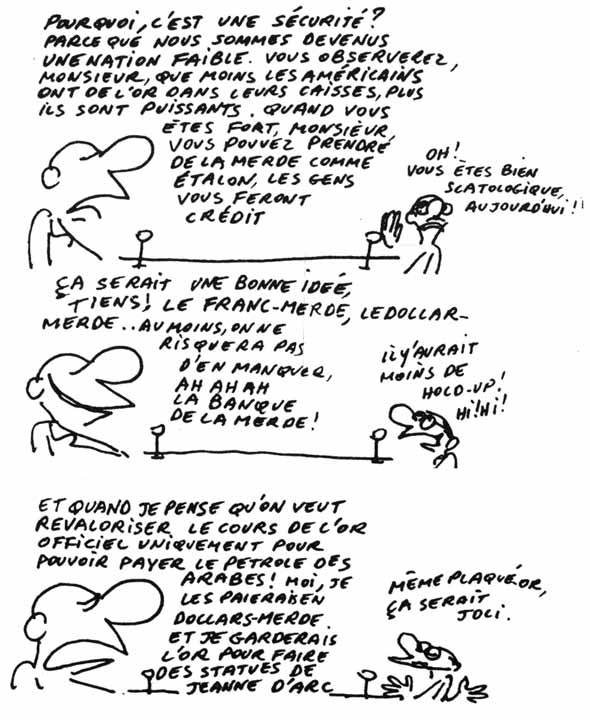 POURQUOI, C'EST UNE SÉCURITÉ?
PARCE QUE NOUS SOMMES DEVENUS
UNE NATION FAIBLE. VOUS OBSERVEREZ,
MONSIEUR, QUE MOINS LES AMÉRICAINS
ONT DE L'OR DANS LEURS CAISSES, PLUS
ILS SONT PUISSANTS. QUAND VOUS
ÊTES FORT, MONSIEUR,
VOUS POUVEZ PRENDRE
DE LA MERDE COMME
ÉTALON, LES GENS
VOUS FERONT
CRÉDIT
OH!
VOUS ÊTES BIEN
SCATOLOGIQUE,
AUJOURD'HUI!
ÇA SERAIT UNE BONNE IDEÉ,
TIENS! LE FRANC-MERDE, LE DOLLAR-
MERDE.. AU MOINS, ON NE
RISQUERA PAS
D'EN MANQUER,
AH AH AH
LA BANQUE
DE LA MERDE!
IL Y'AURAIT
MOINS DE
HOLD-UP!
HI! HI!
ET QUAND JE PENSE QU'ON VEUT
REVALORISER LE COURS DE L'OR
OFFICIEL UNIQUEMENT POUR
POUVOIR PAYER LE PETROLE DES
ARABES! MOI, JE
LES PAIERAIS EN
DOLLARS-MERDE
ET JE GARDERAIS
L'OR POUR FAIRE
DES STATUES DE
JEANNE D'ARC
MÊME PLAQUÉ OR,
ÇA SERAIT
JOLI.